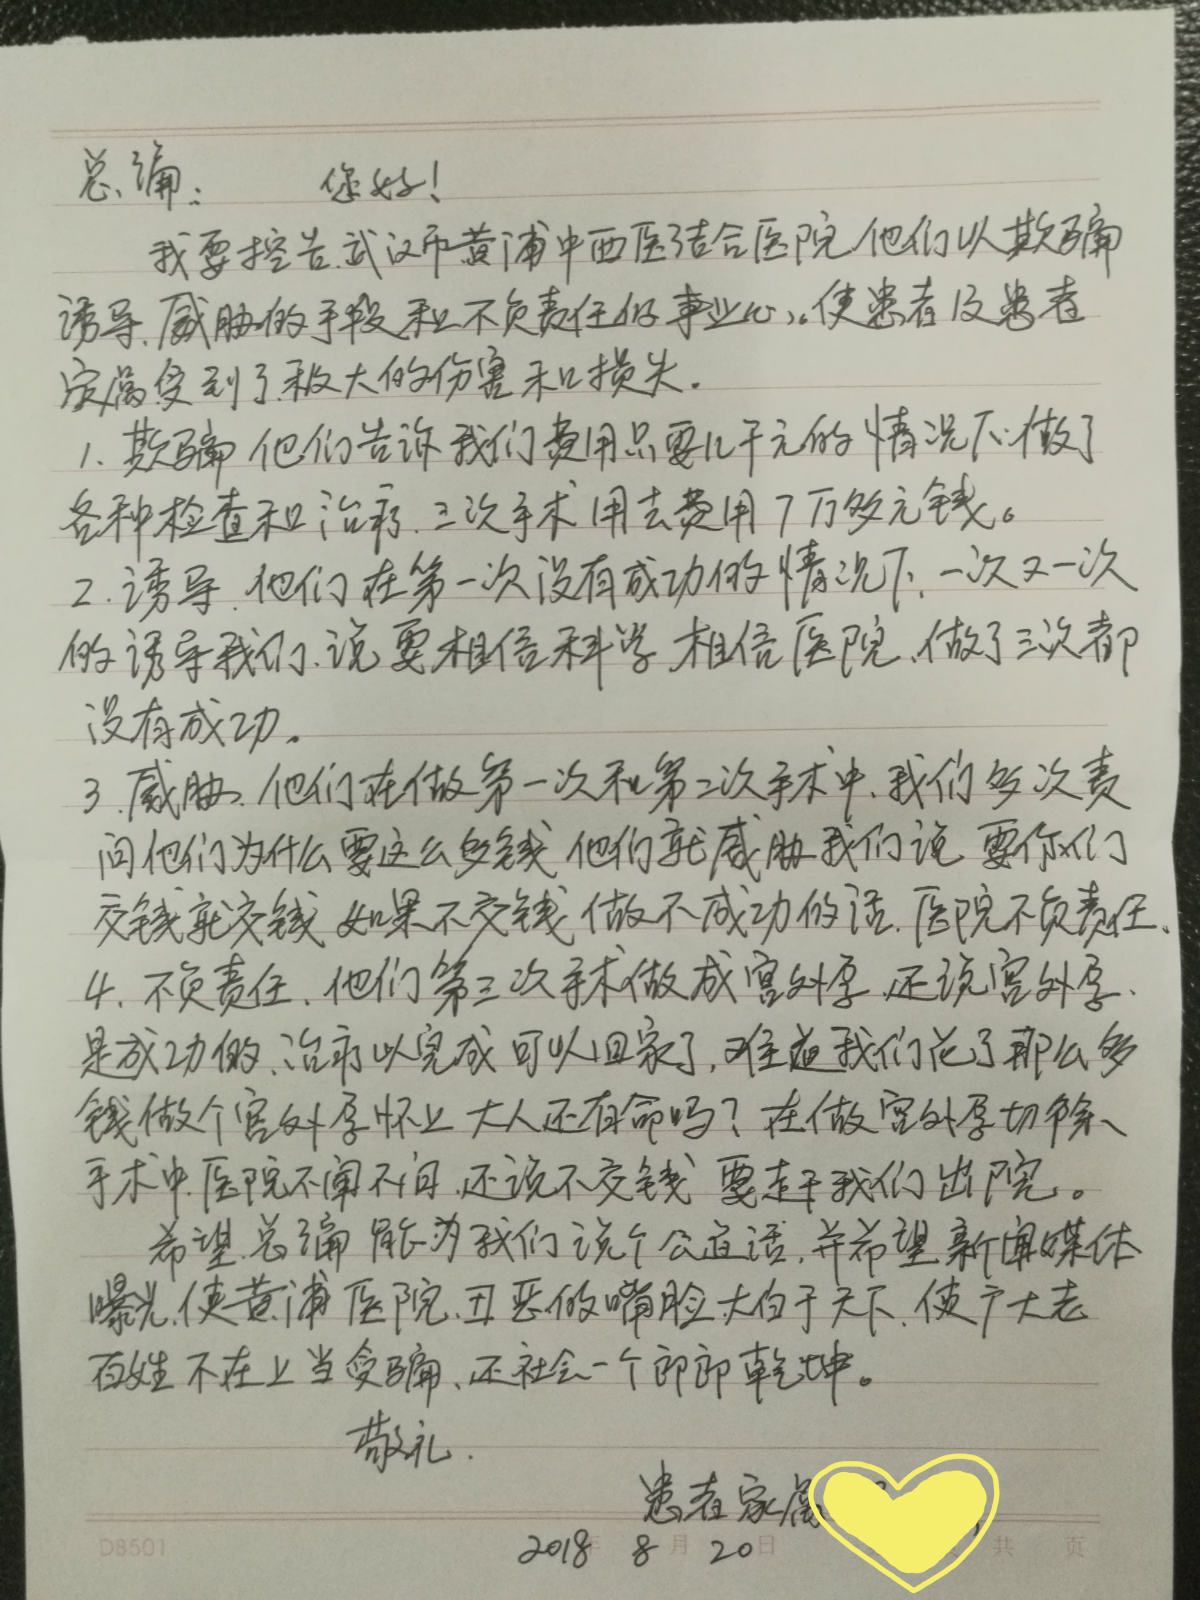 总编: 您好!
我要控告.武汉市黄浦中西医结合医院他们以欺骗
诱导、威胁的手段和不负责任的事业心,。使患者及患者
家属受到了极大的伤害和损失。
1、欺骗 他们告诉我们费用只要几千元的情况下.做了
各种检查和治疗.三次手术用去费用7万多元钱。
2.诱导、他们在第一次没有成功的情况下、一次又一次
的诱导我们、说要相信科学 相信医院、做了三次都
没有成功。
3.威胁、他们在做第一次和第二次手术中、我们多次责
问他们为什么要这么多钱 他们就威胁我们说 要你们
交钱就交钱 如果不交钱 做不成功的话.医院不负责任.
4、不负责任、他们第三次手术做成宫外孕.还说宫外孕、
是成功的、治疗以完成可以回家了,难道我们花了那么多
钱做个宫外孕怀上 大人还有命吗?在做宫外孕切除、
手术中.医院不闻不问.还说不交钱 要赶我们出院。
希望.总编能为我们说个公道话.并希望新闻媒体
曝光.使黄浦医院.丑恶的嘴脸大白于天下.使广大老
百姓不在上当受骗、还社会一个郎郎乾坤。
敬礼.
患者家属
2018年 8月 20日 共 页
D8501